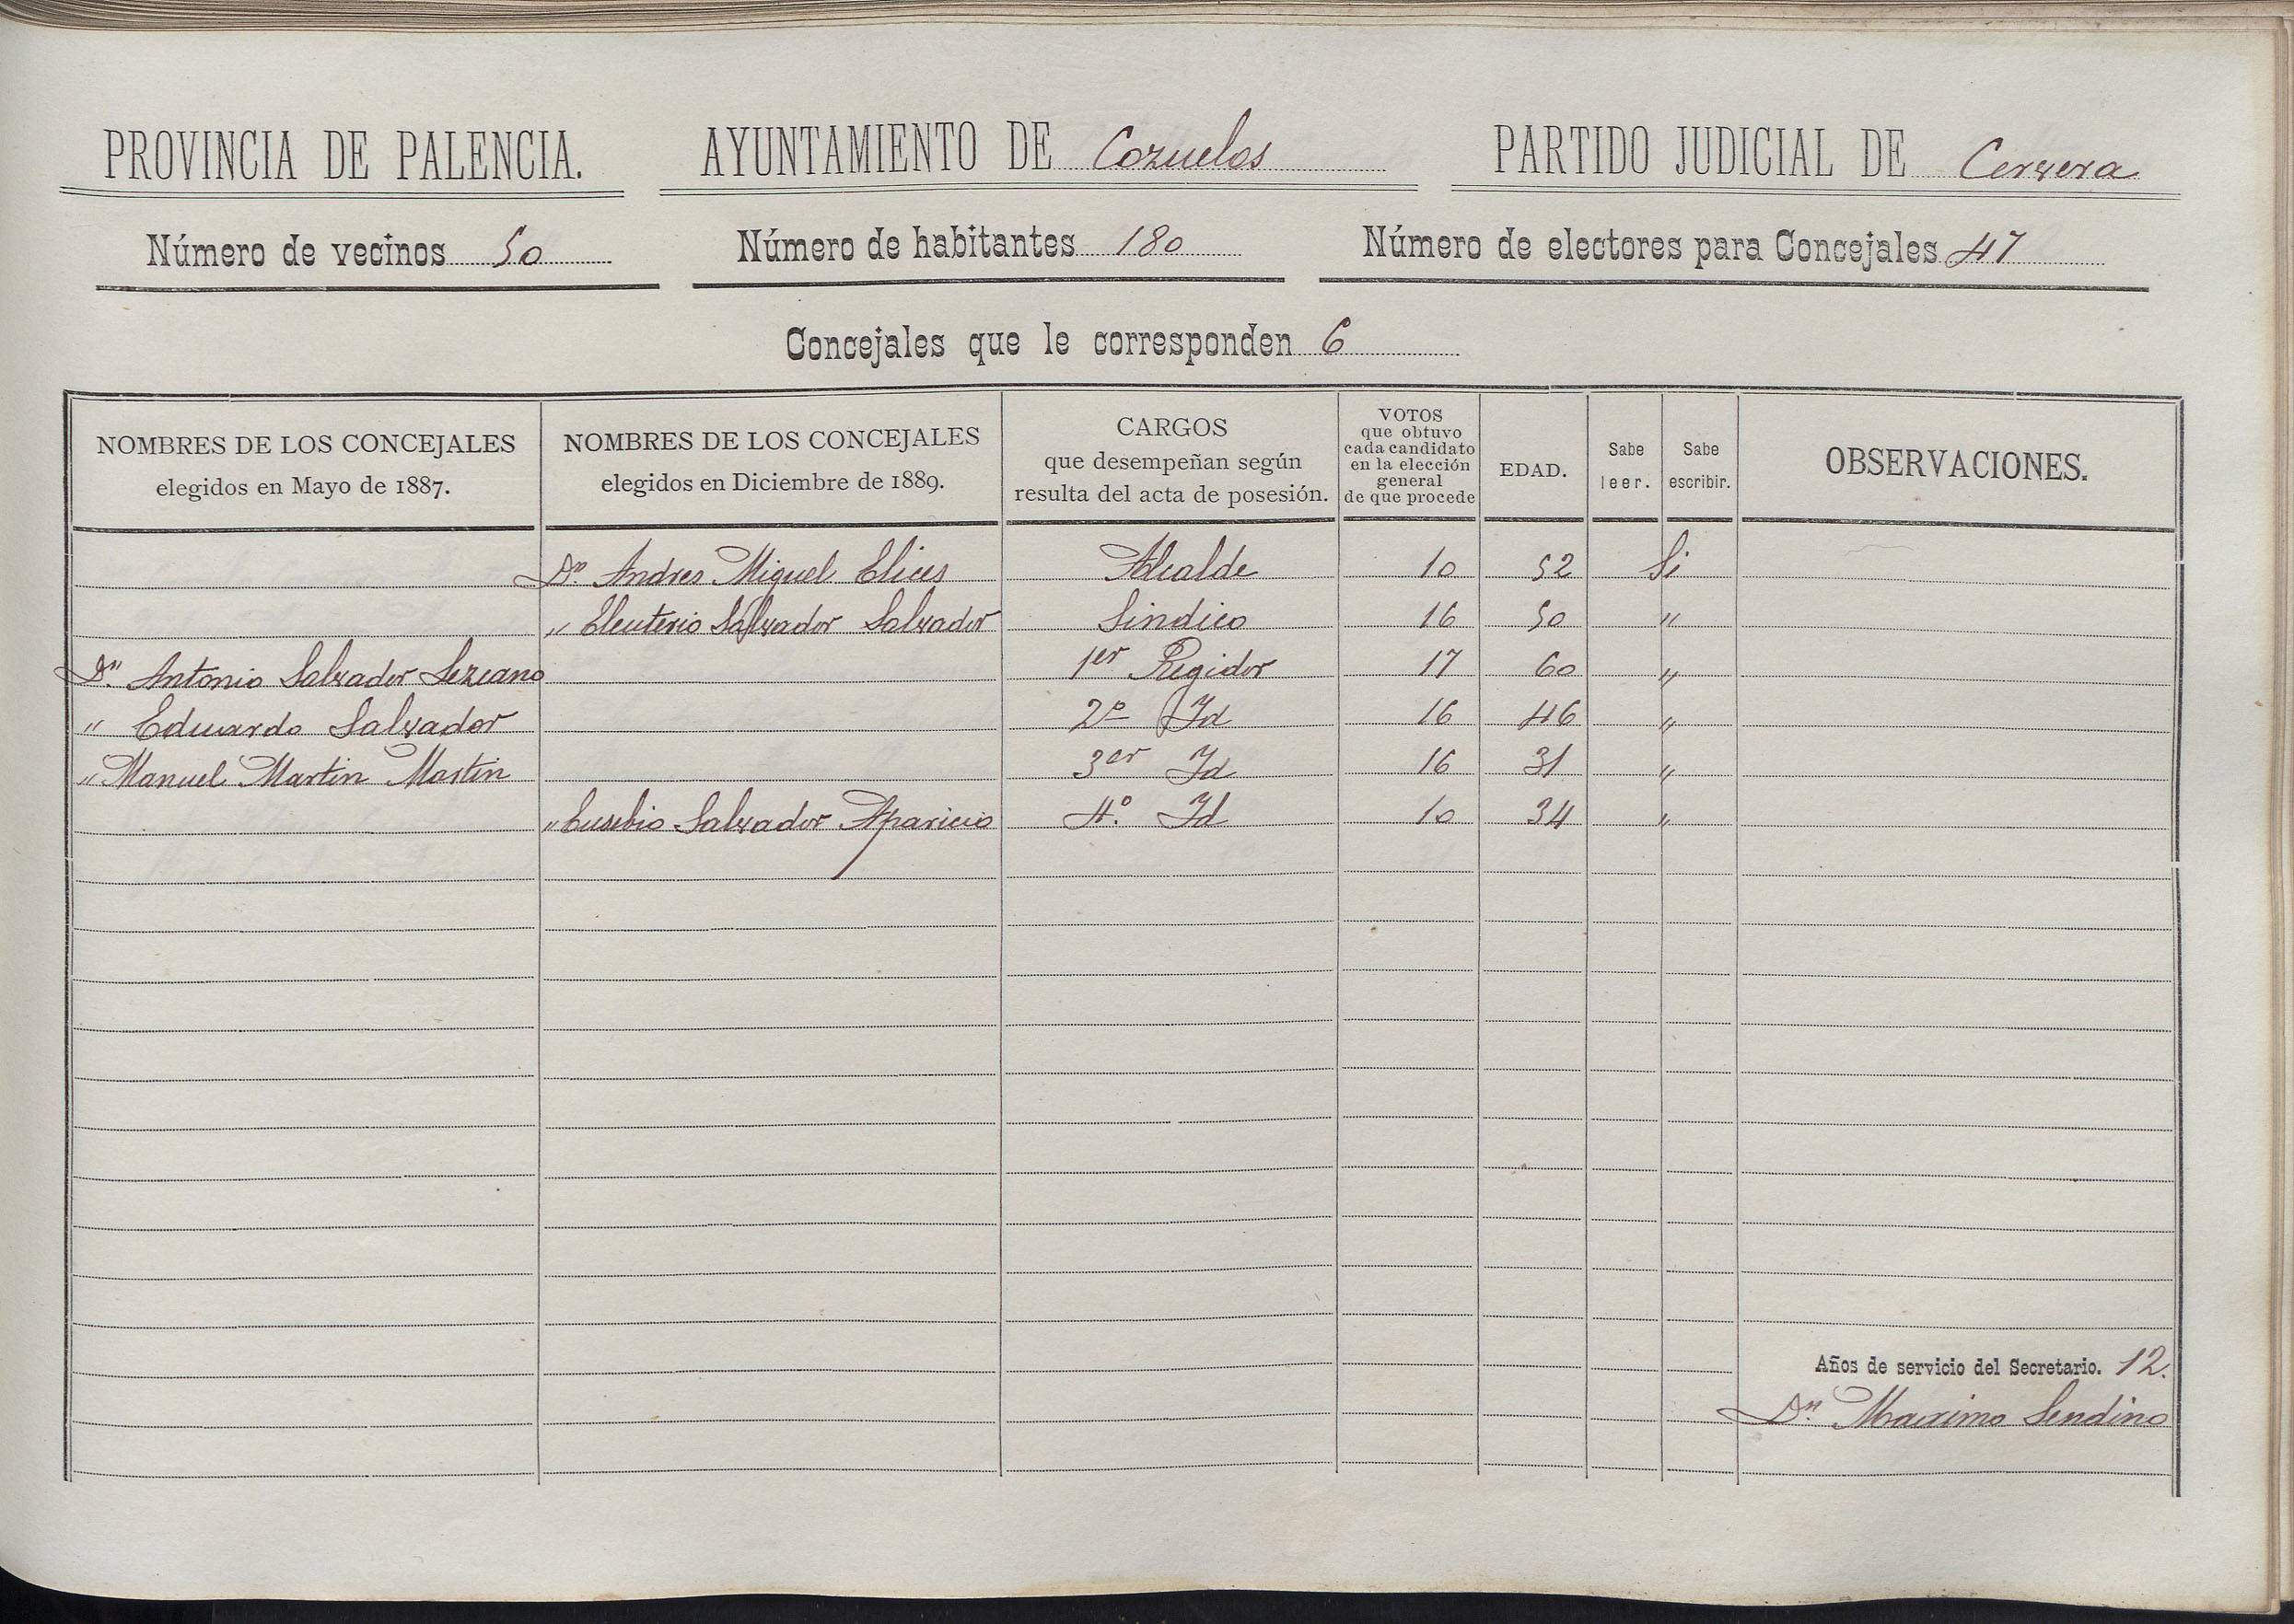 PROVINCIA DE PALENCIA. AYUNTAMIENTO DE Cozuelos PARTIDO JUDICIAL DE Cervera
Número de vecinos 50 Número de habitantes 180 Número de electores para Concejales 47
Concejales que le corresponden 6
NOMBRES DE LOS CONCEJALES
elegidos en Mayo de 1887.
NOMBRES DE LOS CONCEJALES
elegidos en Diciembre de 1889.
CARGOS
que desempeñan según
resulta del acta de posesión.
VOTOS
que obtuvo
cada candidato
en la elección
general
de que procede
EDAD.
Sabe
leer.
Sabe
escribir.
OBSERVACIONES.
Dn. Andres Miguel Elices Alcalde 10 52 Si
" Eleuterio Salvador Salvador Sindico 16 50 "
Dn. Antonio Salvador Lezcano 1er Regidor 17 60 "
" Eduardo Salvador 2º Id 16 46 "
" Manuel Martin Martin 3er Id 16 31 "
" Eusebio Salvador Aparicio 4º. Id 10 34 "
Años de servicio del Secretario. 12.
Dn. Maximo Sendino